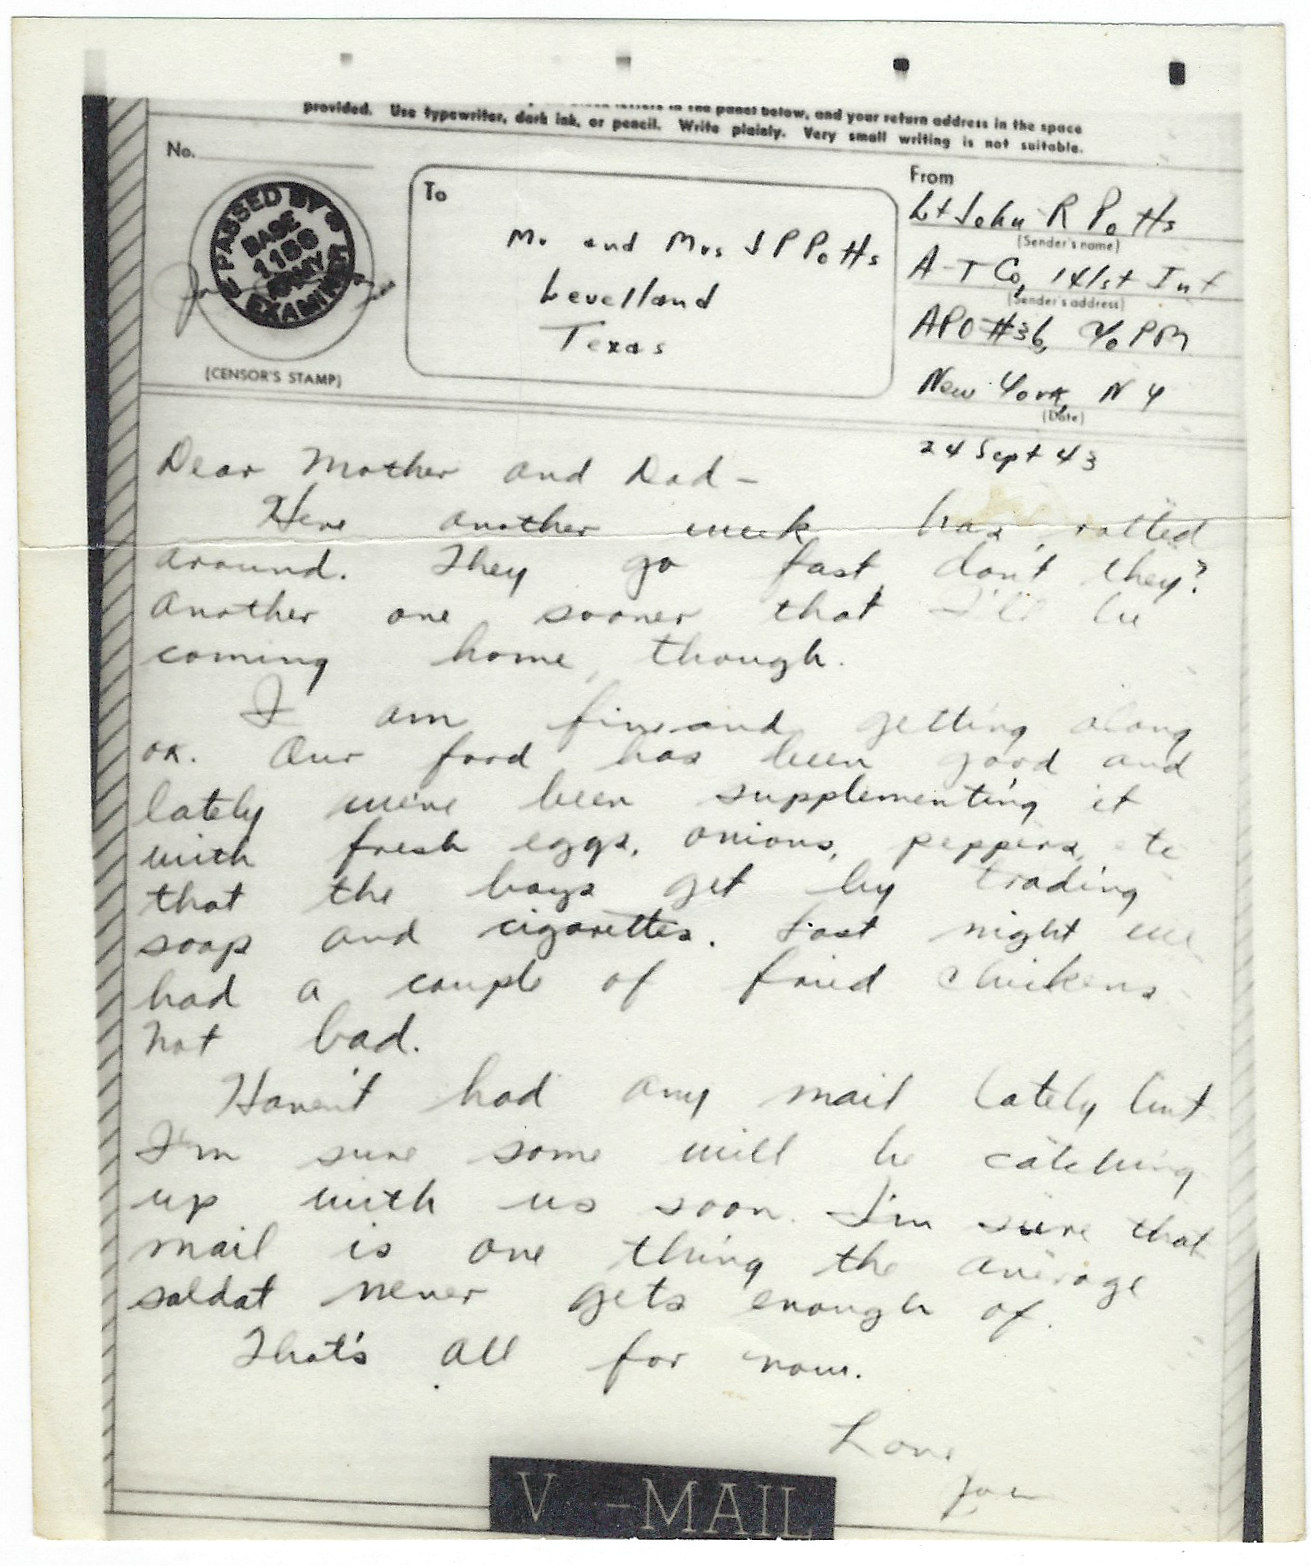 letters in the panel below, and your return address in the space
provided. Use typewriter, dark ink, or pencil. Write plainly. Very small writing is not suitable.
No.
PASSED BY
BASE
1186
ARMY
EXAMINER
(CENSOR'S STAMP)
To
Mr and Mrs J P Potts
Levelland
Texas
From
Lt John R Potts
(Sender's name)
A-T Co, 141st Inf
(Sender's address)
APO #36, c/o PM
New York, N Y
(Date)
24 Sept 43
Dear Mother and Dad -
Here another week has rolled
around. They go fast, don't they?
Another one sooner that I'll be
coming home, though.
I am fine and getting along
OK. Our food has been good and
lately we've been supplementing it
with fresh eggs, onions, peppers, etc
that the boys get by trading
soap and cigarettes. Last night we
had a couple of fried chickens.
Not bad.
Haven't had any mail lately but
I'm sure some will be catching
up with us soon. I'm sure that
mail is one thing the average
soldat never gets enough of.
That's all for now.
Love
V-MAIL